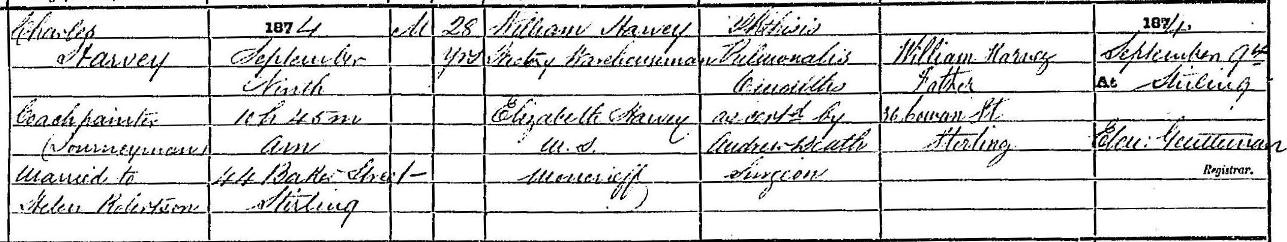 Charles
Harvey
Coachpainter
(Journeyman)
Married to
Helen Robertson
1874
September
Ninth
10 h 45 m
AM
44 Baker Street
Stirling
M
28
yrs
William Harvey
Factory Warehouseman
Elizabeth Harvey
M. S.
Moncrieff
Phthisis
Pulmonalis
as certd by
Surgeon
William Harvey
Father
36 Cowan St
Stirling
1874
September 9th
At Stirling
Registrar.